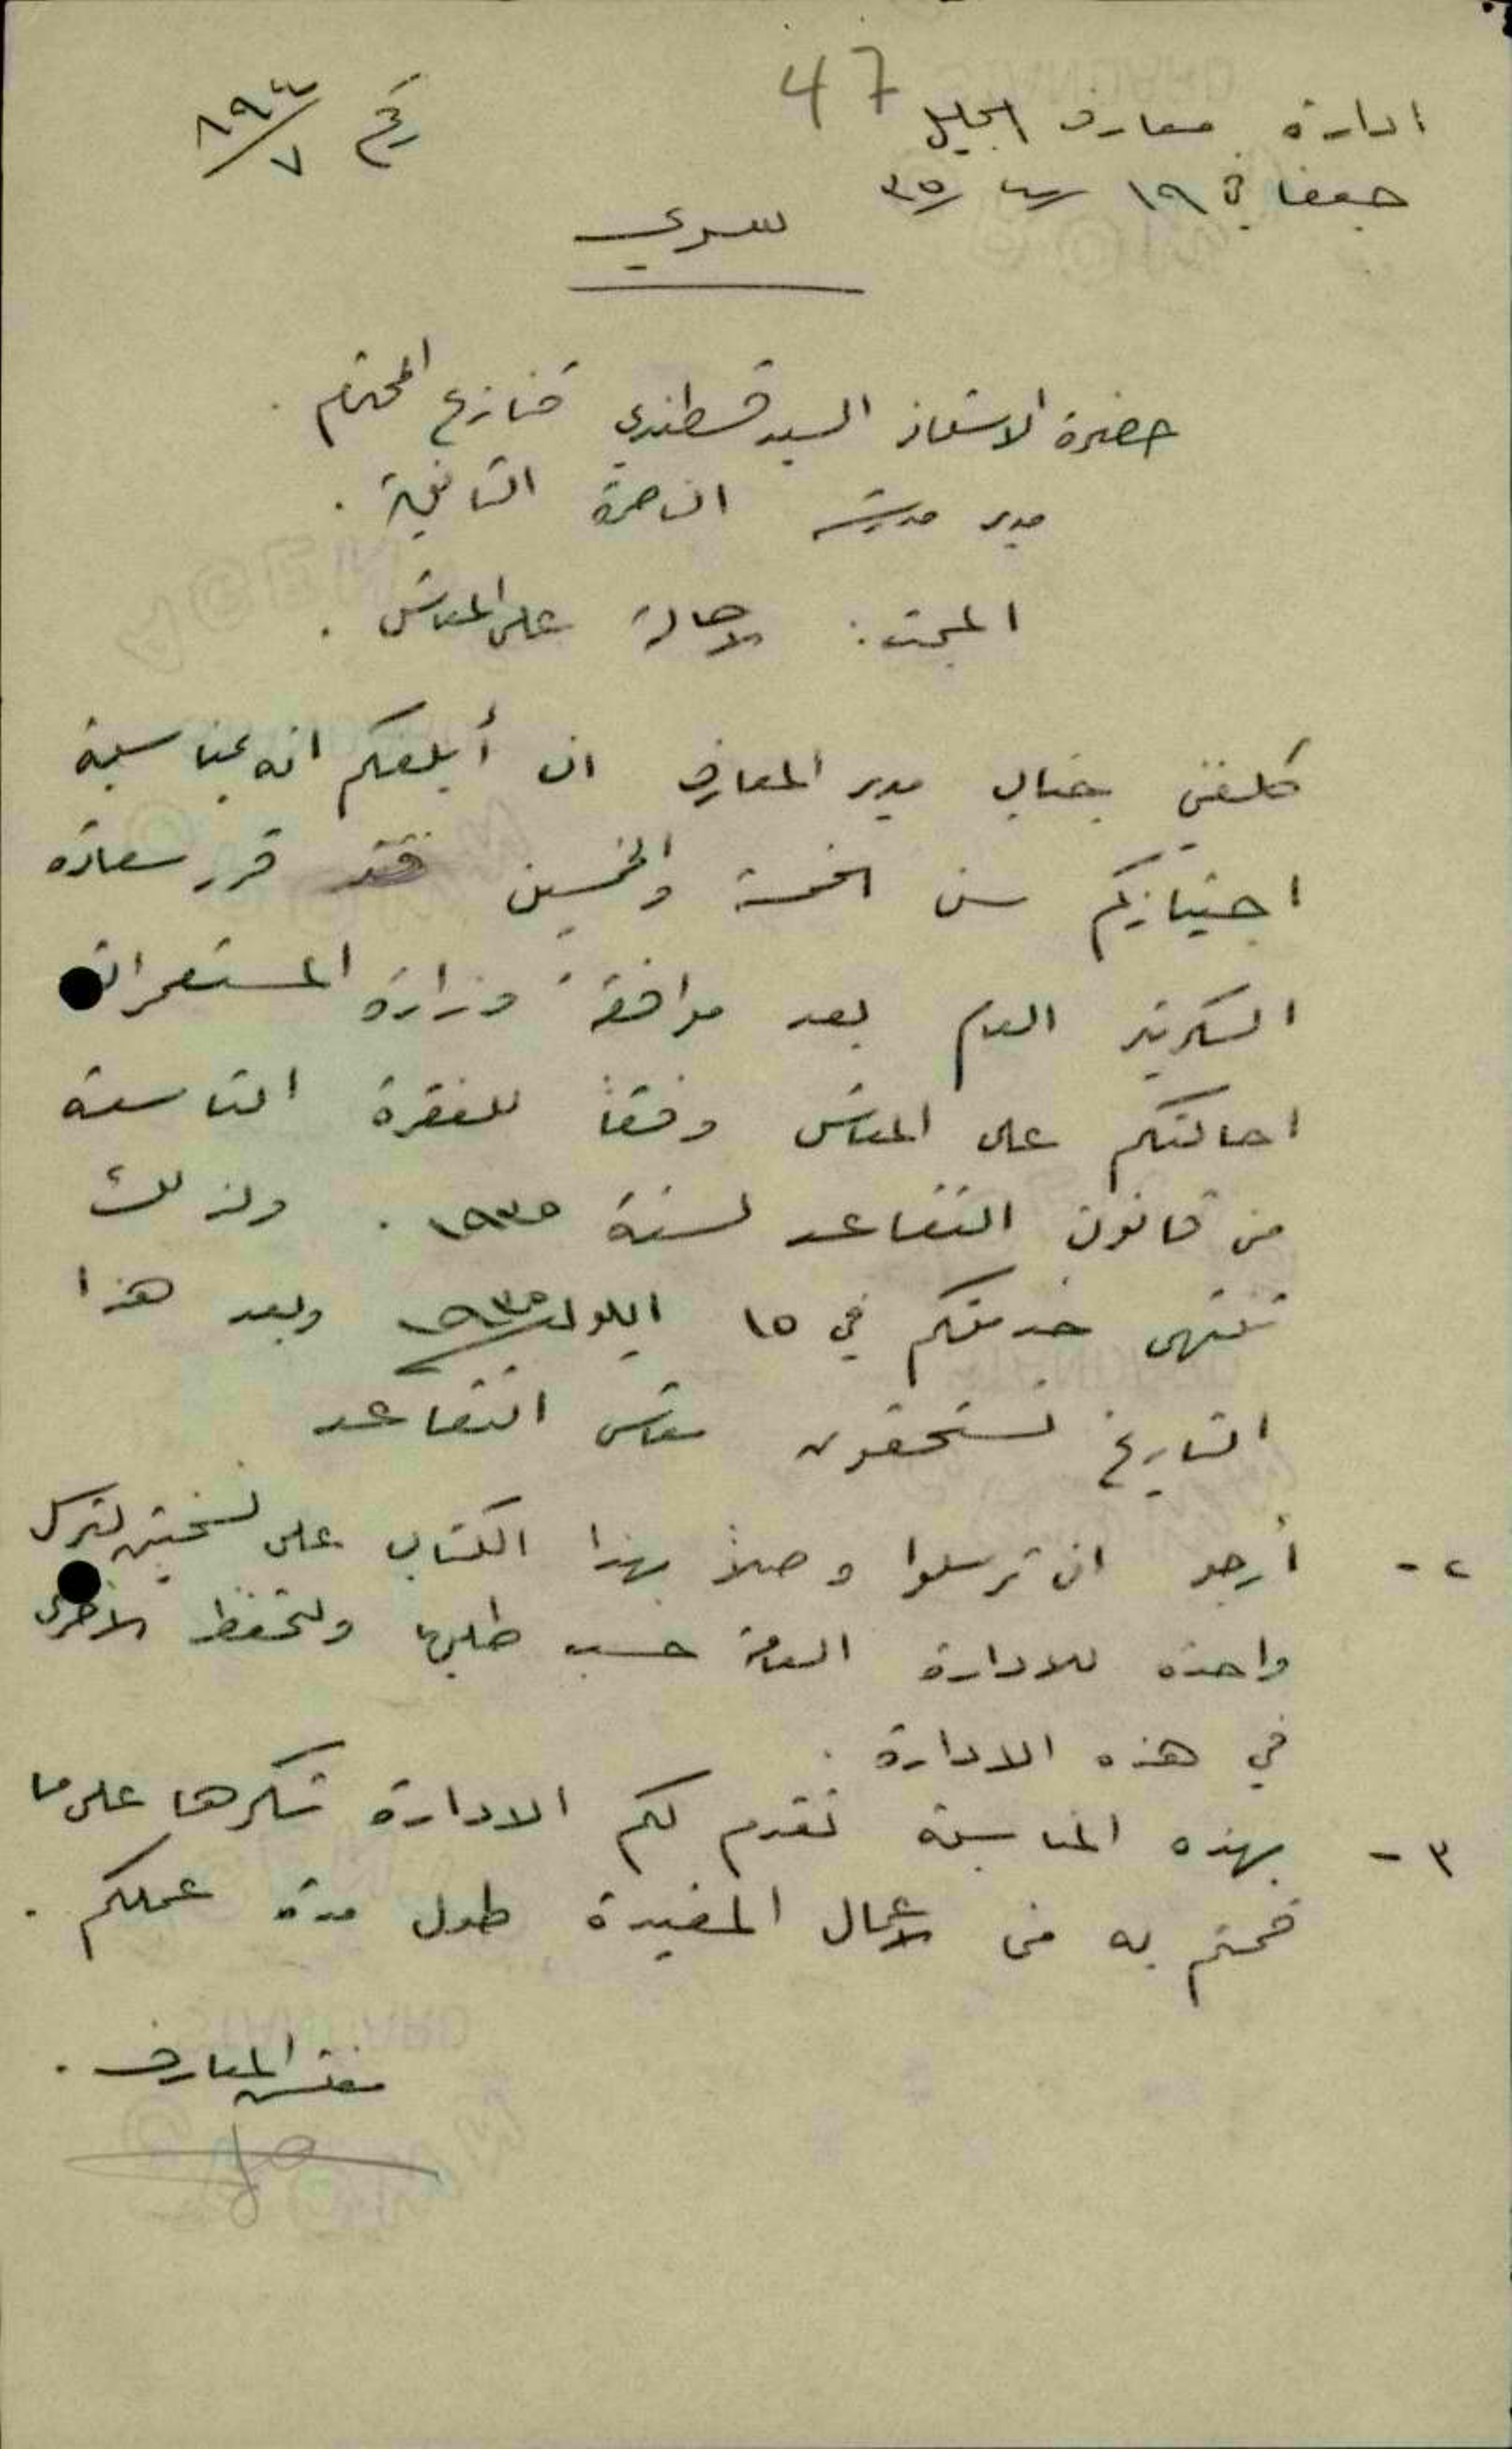 47
ادارة معارف الجليل
رقم ٨٩٤/٧
حيفا في ١٩ /٤/ ٣٥
سري
حضرة الاستاذ السيد قسطندي قنازع المحترم .
مدير مدرسة الناصرة الثانوية .
المبحث : الاحالة على المعاش .
كلفني جناب مدير المعارف ان أبلغكم انه بمناسبة
اجتيازكم سن الخمسة والخمسين فقد قرر سعادة
السكرتير العام بعد موافقة وزارة المستعمرات
احالتكم على المعاش وفقاً للفقرة التاسعة
من قانون التقاعد لسنة ١٩٣٥ . ولذلك
تنتهي خدمتكم في ١٥ ايلول ٩٣٥ وبعد هذا
التاريخ تستحقون معاش التقاعد
٢ - أرجو ان ترسلوا وصلاً بهذا الكتاب على نسختين لترسل
واحدة للادارة العامة حسب طلبها ولتحفظ الاخرى
في هذه الادارة .
٣ - بهذه المناسبة تقدم لكم الادارة شكرها على ما
قمتم به من الاعمال المفيدة طول مدة عملكم .
مفتش المعارف .